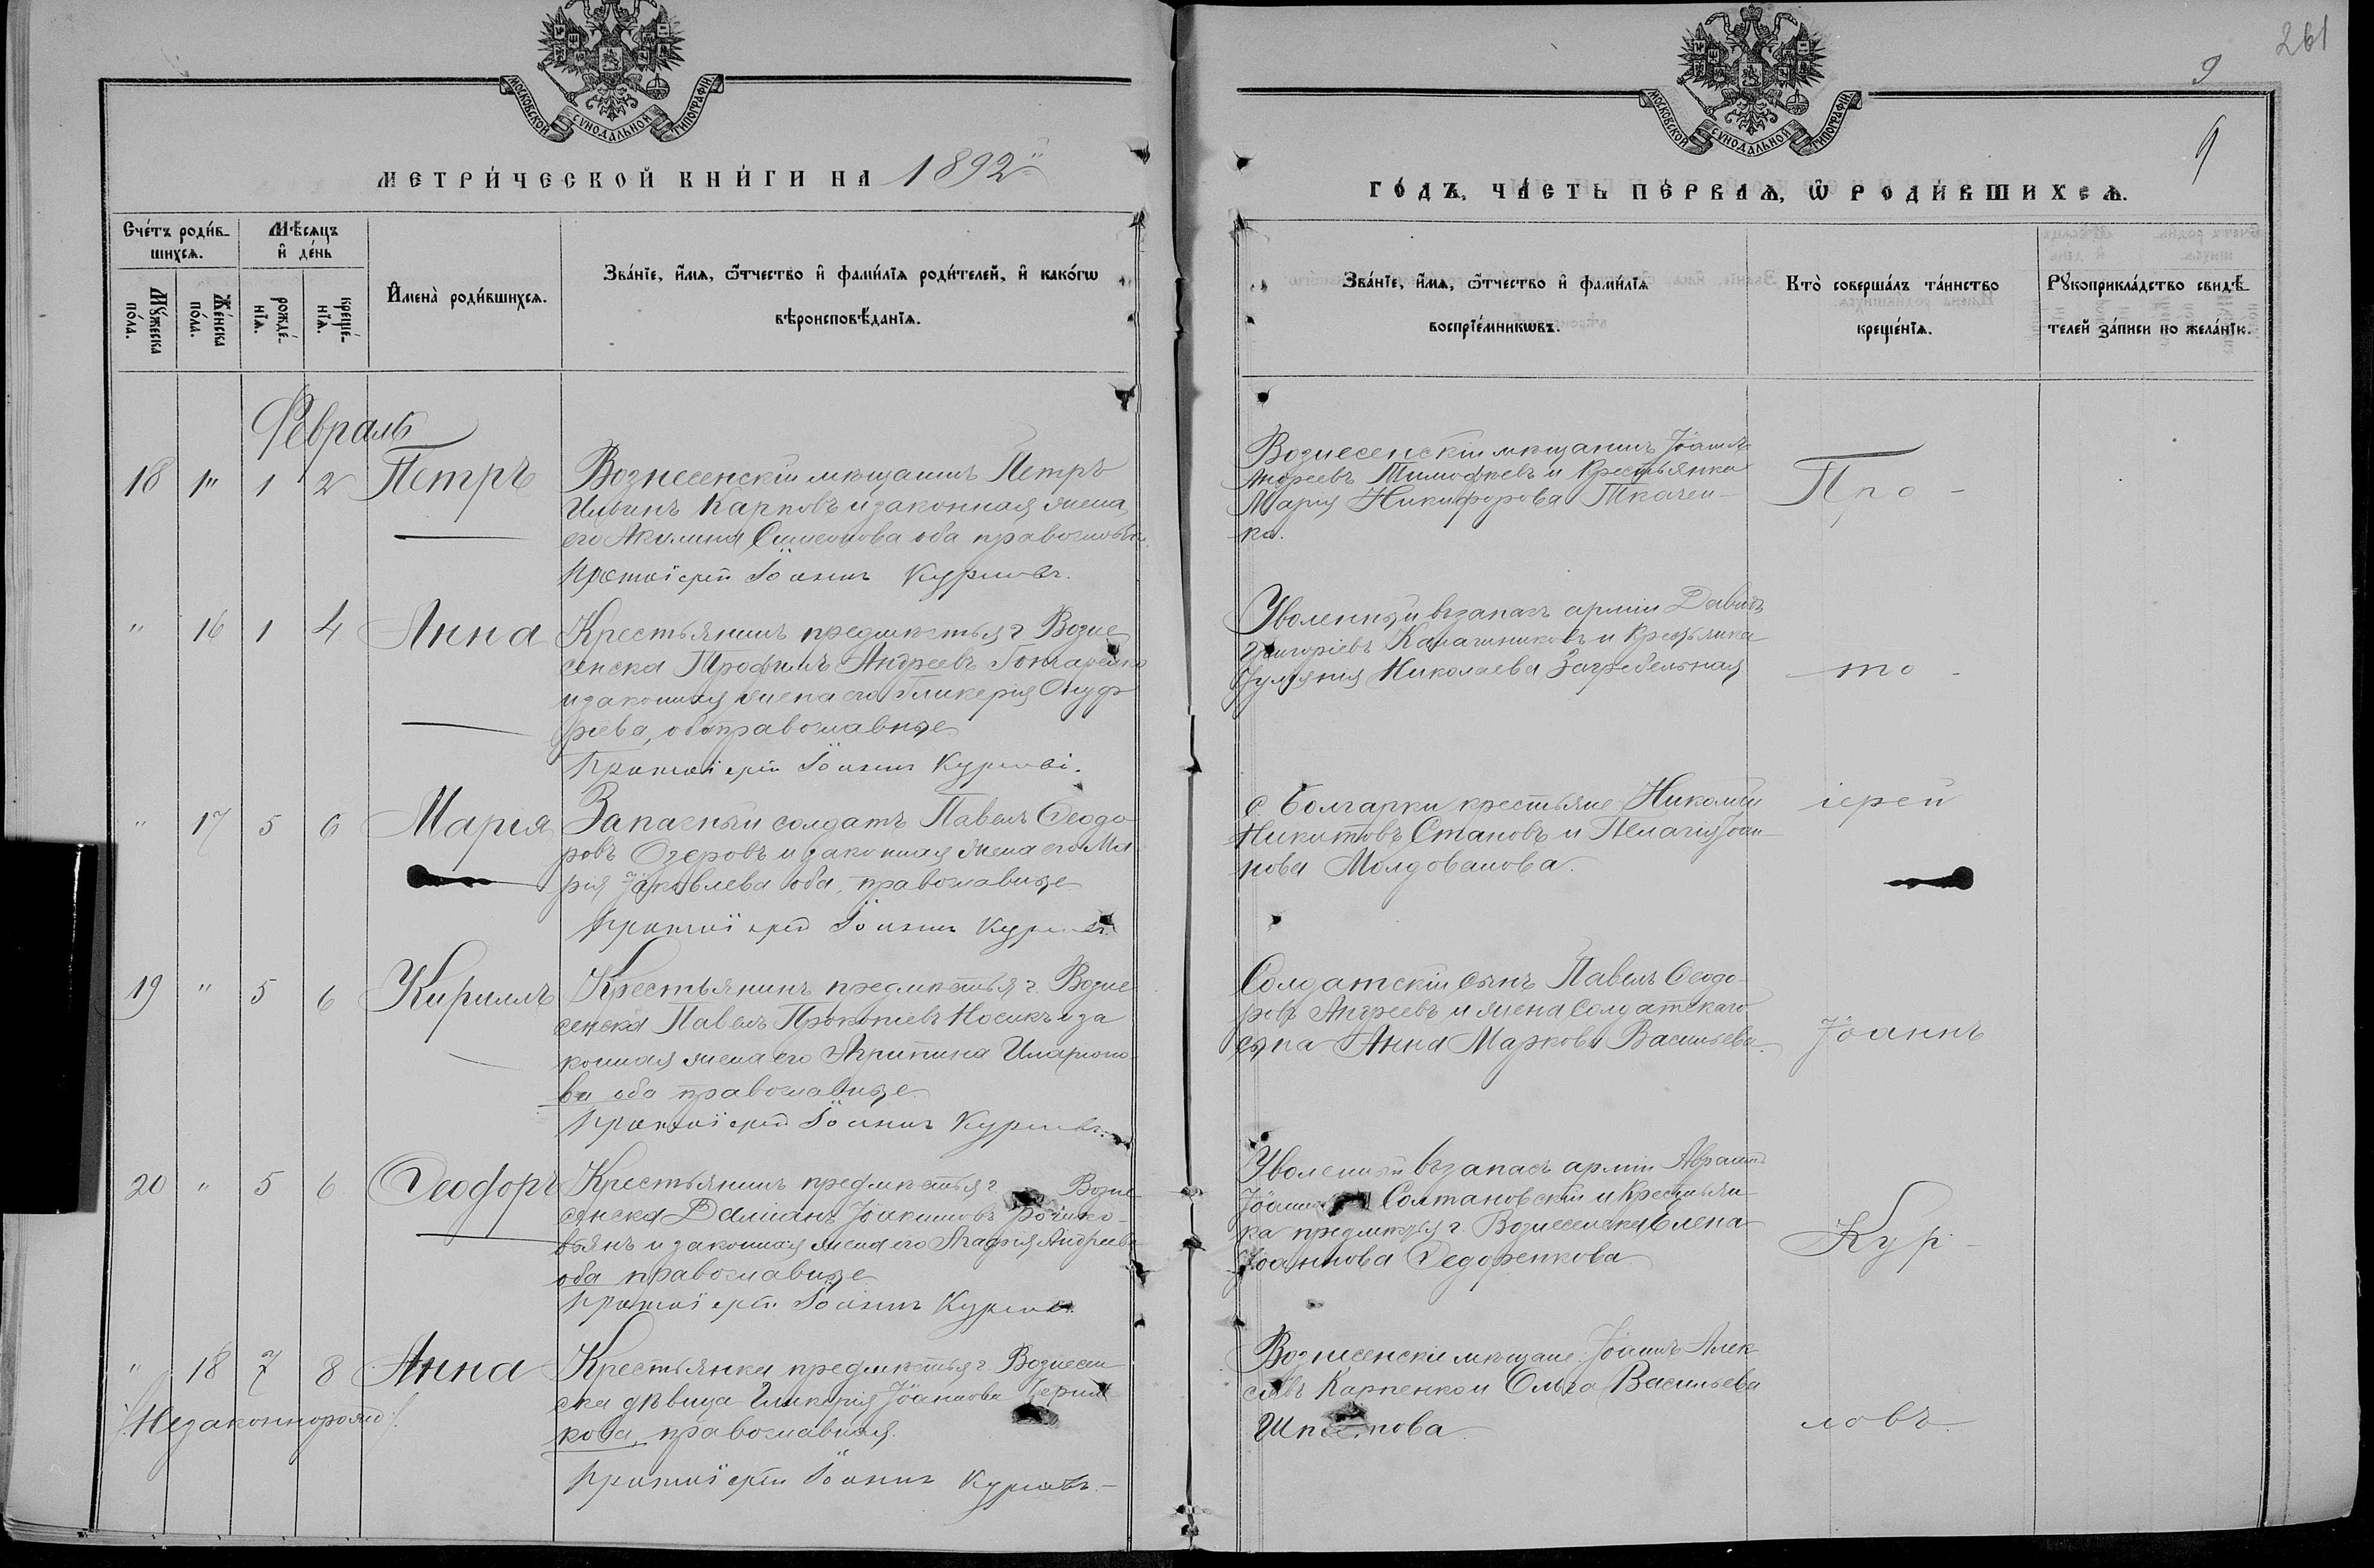 261
9
9
МОСКОВСКОЙ СѴНОДАЛЬНОЙ ТИПОГРАФІИ.
МОСКОВСКОЙ СѴНОДАЛЬНОЙ ТИПОГРАФІИ.
МЕТРИ́ЧЕСКОЙ КНИ́ГИ НА 1892
ГО́ДЪ, ЧА́СТЬ ПЕ́РВАѦ, Ѡ РОДИ́ВШИХСѦ.
Сче́тъ роди́в-
шихсѧ.
Мꙋ́жеска по́ла.
Же́нска по́ла.
Мѣ́сѧцъ
и҆ де́нь
рожде́-
нїѧ.
креще́-
нїѧ.
И҆мена̀ роди́вшихсѧ.
Зва́нїе, и҆́мѧ, ѻ҆́тчество и҆ фами́лїѧ роди́телей, и҆ како́гѡ
вѣроисповѣ́данїѧ.
Зва́нїе, и҆́мѧ, ѻ҆́тчество и҆ фами́лїѧ
воспрїе́мникѡвъ.
Кто̀ соверша́лъ та́инство
креще́нїѧ.
Рꙋкоприкла́дство свидѣ́-
телей за́писи по жела́нїю.
Февраль
18 " 1 2 Петръ
Вознесенскій мѣщанинъ Петръ
Ильинъ Карповъ и законная жена
его Акилина Симеонова оба православн.
Протоіерей Іоаннъ Курловъ.
Вознесенскій мѣщанинъ Іоаннъ
Андреевъ Тимофѣевъ и Крестьянка
Марія Никифорова Ткачен-
ка.
Про-
" 16 1 4 Анна
Крестьянинъ предмѣстья г. Возне
сенска Трофимъ Андреевъ Гончаренко
и законная жена его Гликерія Онуф
ріева, оба православные
Протоіерей Іоаннъ Курловъ.
Уволенный въ запасъ арміи Давидъ
Григоріевъ Калашниковъ и Крестьянка
Іуліанія Николаева Загребельная
то-
" 17 5 6 Марія
Запасный солдатъ Павелъ Ѳеодо
ровъ Озеровъ и законная жена его Ма
рія Іаковлева оба, православные
Протоіерей Іоаннъ Курловъ.
с. Болгарки крестьяне Николай
Никитовъ Становъ и Пелагія Іоан-
нова Молдованова.
іерей
19 " 5 6 Кириллъ
Крестьянинъ предмѣстья г. Возне
сенска Павелъ Прокопіевъ Носикъ и за
конная жена его Агрипина Иларіоно-
ва оба православные.
Протоіерей Іоаннъ Курловъ.
Солдатскій сынъ Павелъ Ѳеодо-
ровъ Андреевъ и жена Солдатскаго
сына Анна Маркова Васильева.
Іоаннъ
20 " 5 6 Ѳеодоръ
Крестьянинъ предмѣстья г. Возне
сенска Даміанъ Іоакимовъ
и законная жена его Агафія Андреева
оба православные
Протоіерей Іоаннъ Курловъ.
Уволенный въ запасъ арміи Авраамъ
Солтановскій и Крестьян
ка предмѣстья г. Вознесенска Елена
Іоаннова Ѳедоренкова
Кур-
" 18 7 8 Анна
Незаконнорожд.
Крестьянка предмѣстья г. Вознесен
ска дѣвица Гликерія Іоаннова
кова, православная.
Протоіерей Іоаннъ Курловъ.-
Вознесенскіе мѣщане: Іоаннъ Алек
сѣевъ Карпенко и Ольга Васильева
ловъ.